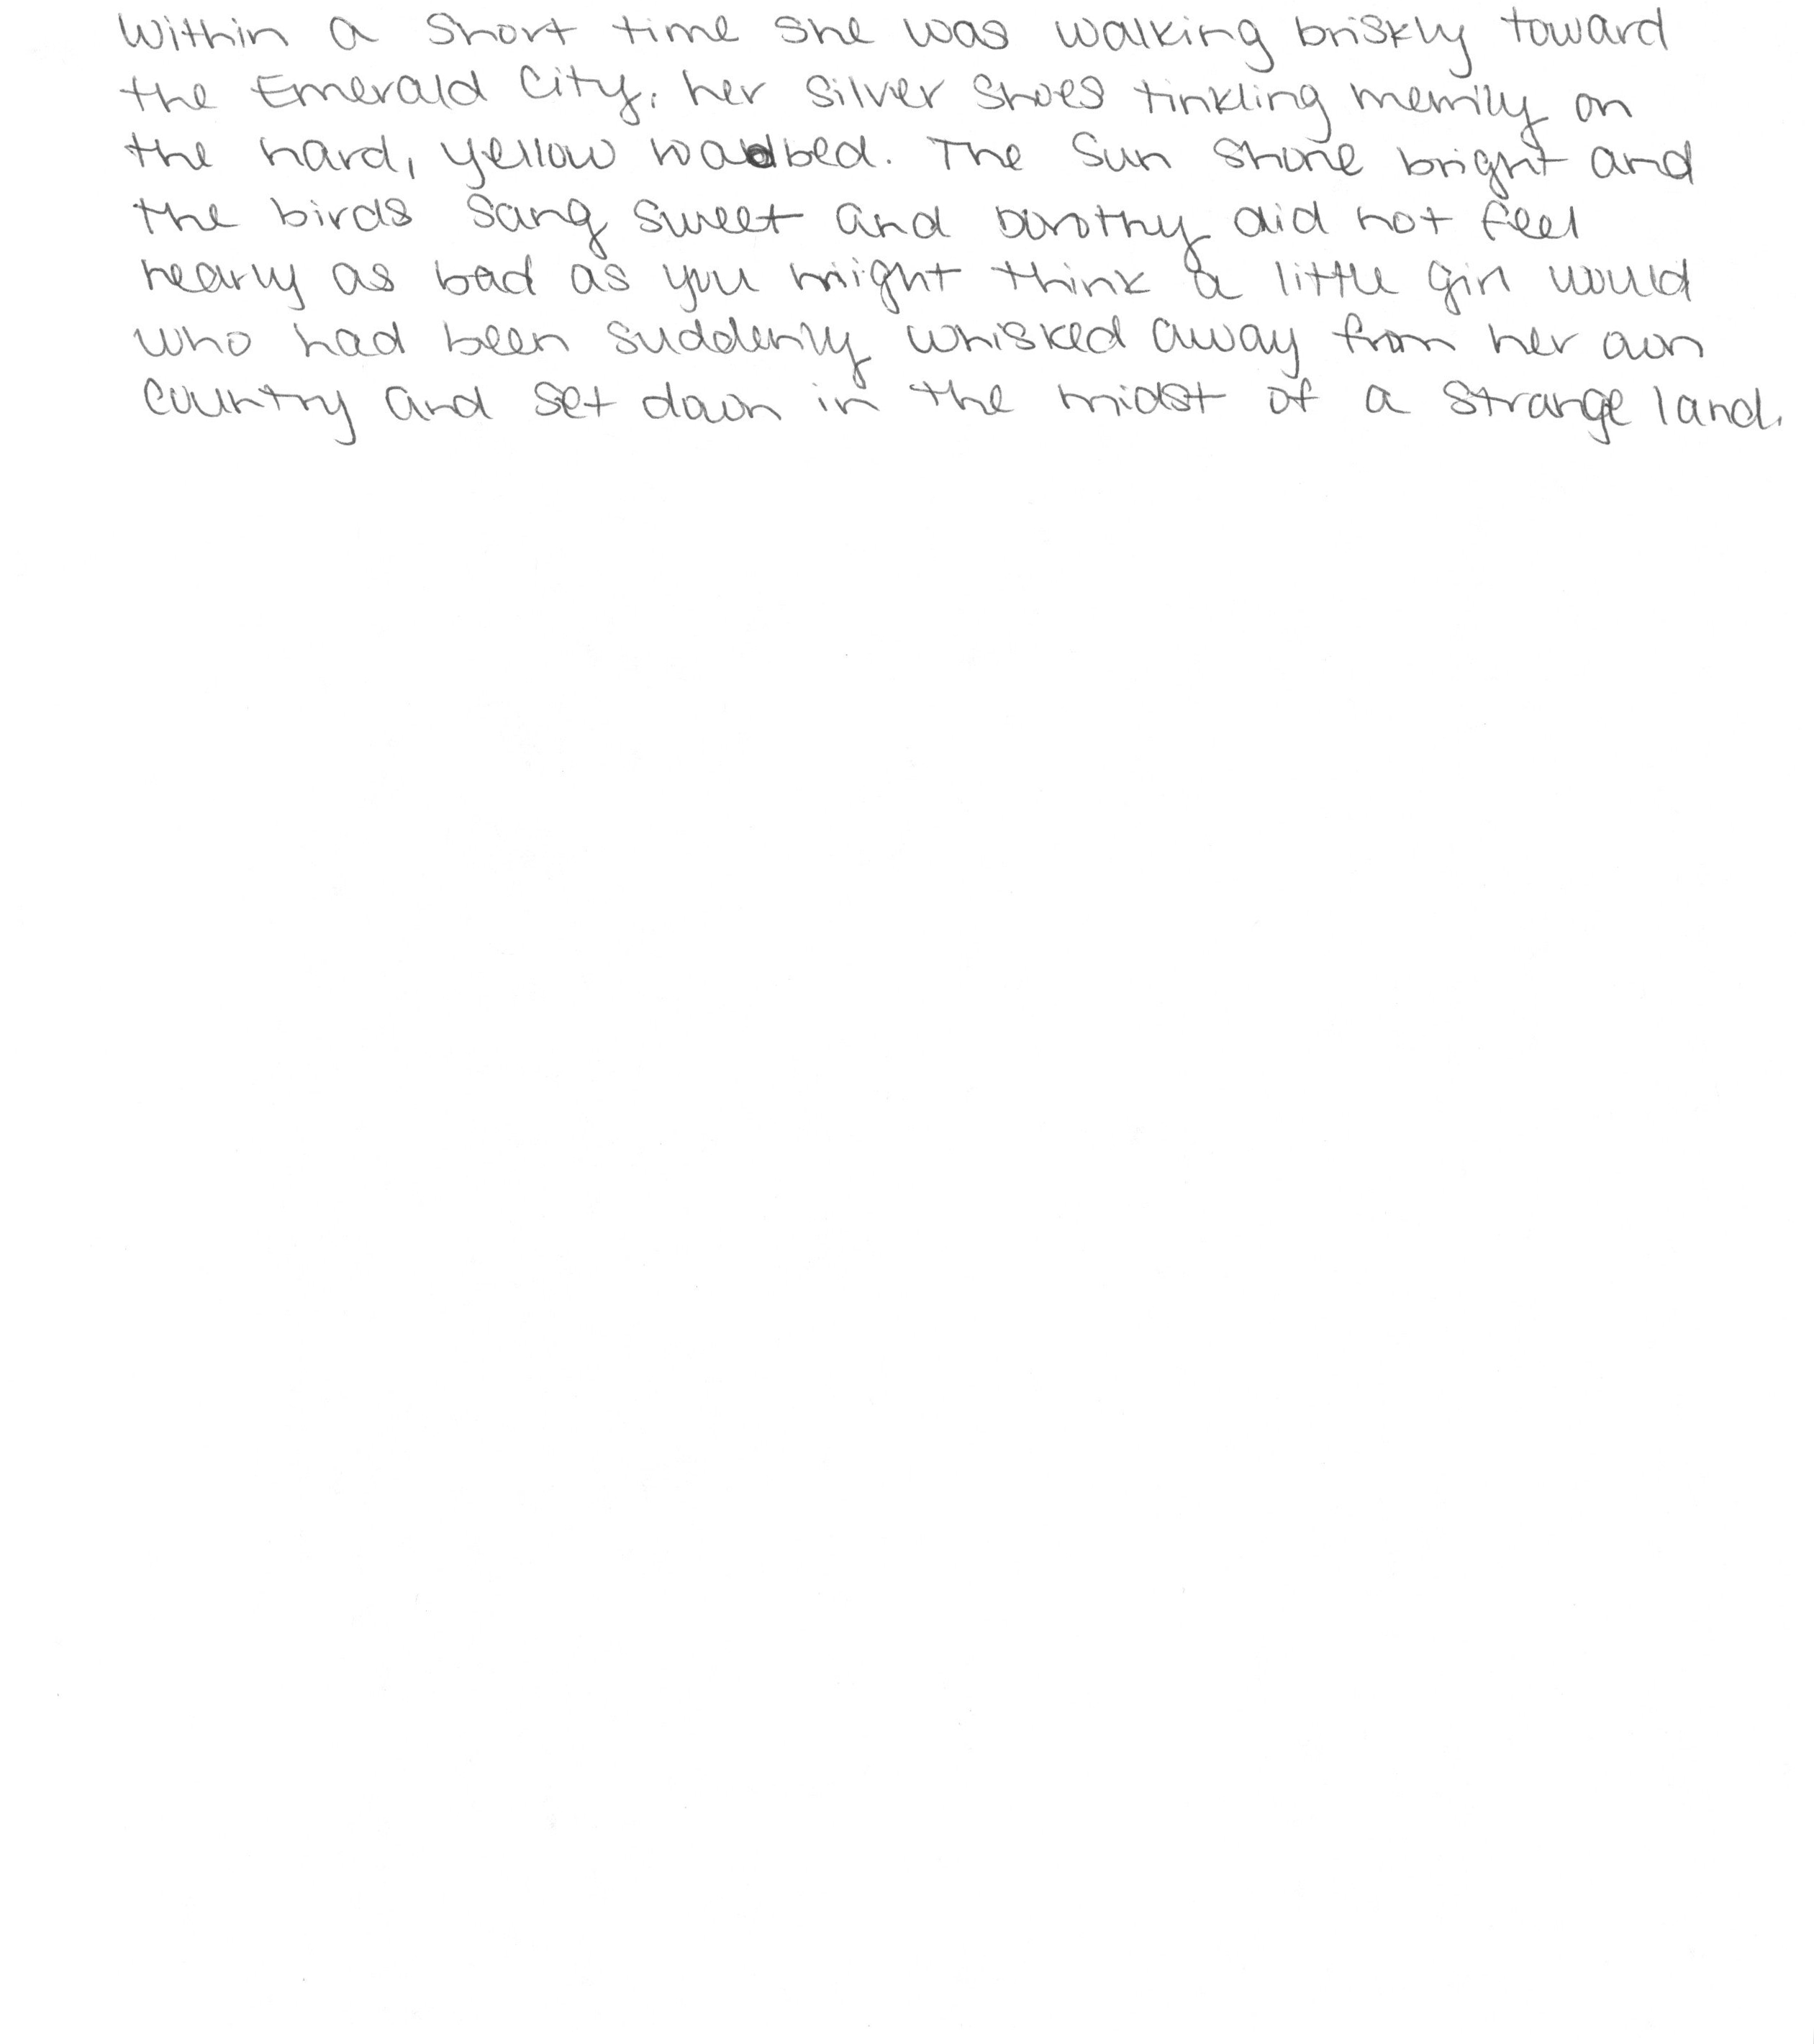 Within a short time she was walking briskly toward
the Emerald City, her Silver Shoes tinkling merrily on
the hard, yellow roadbed. The Sun shone bright and
the birds Sang Sweet and Dorothy did not feel
nearly as bad as you might think a little girl would
who had been suddenly whisked away from her own
Country and set down in the midst of a strange land.